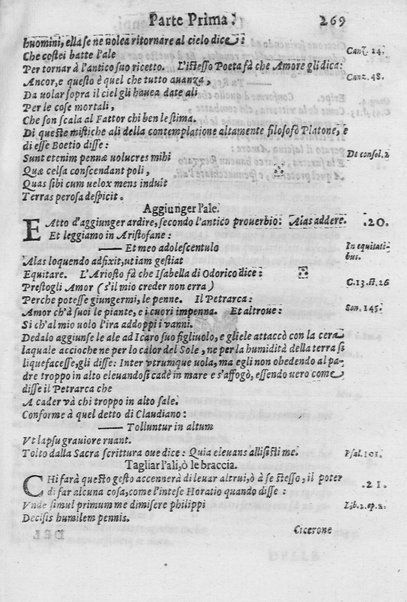 Parte Prima. 269
huomini, ella se ne volea ritornare al cielo dice:
Che costei batte l'ale Canz. 24.
Per tornar à l'antico suo ricetto. L'istesso Poeta fà che Amore gli dica:
Ancor, e questo è quel che tutto auanza, Canz. 48.
Da volar sopra il ciel gli hauea date ali
Per le cose mortali,
Che son scala al Fattor chi ben l'estima.
Di queste mistiche ali della contemplatione altamente filosofò Platone, e
di esse Boetio disse:
Sunt etenim pennæ volucres mihi De consol. 2
Quæ celsa conscendant poli,
Quas sibi cum velox mens induit
Terras perosa despicit.
Aggiunger l'ale.
E Atto d'aggiunger ardire, secondo l'antico prouerbio: Alas addere. 20.
Et leggiamo in Aristofane:
—— Et meo adolescentulo In equitati-
Alas loquendo adfixit, vtiam gestiat bus.
Equitare. L'Ariosto fà che Isabella di Odorico dice:
Prestogli Amor (s'il mio creder non erra) C. 13. st. 26
Perche potesse giungermi, le penne. Il Petrarca:
Amor ch'à suoi le piante, e i cuori impenna. Et altroue: Son. 145.
Si ch'al mio volo l'ira addoppi i vanni.
Dedalo aggiunse le ale ad Icaro suo figliuolo, e gliele attaccò con la cera
laquale accioche ne per lo calor del Sole, ne per la humidità della terra si
liquefacesse, gli disse: Inter vtrumque vola, ma egli non obedendo al pa-
dre troppo in alto eleuandosi cadè in mare e s'affogò, essendo vero come
disse il Petrarca che
A cader và chi troppo in alto sale.
Conforme à quel detto di Claudiano:
—— Tolluntur in altum
Vt lapsu grauiore ruant.
Tolto dalla Sacra scrittura oue dice: Quia eleuans allisisti me. Psal. 101.
Tagliar l'ali, ò le braccia.
CHi farà questo gesto accennerà di leuar altrui, ò à se stesso, il poter 21.
di far alcuna cosa, come l'intese Horatio quando disse:
Vnde simul primum me dimisere philippi Lib. 2. ep. 2.
Decisis humilem pennis.
Cicerone